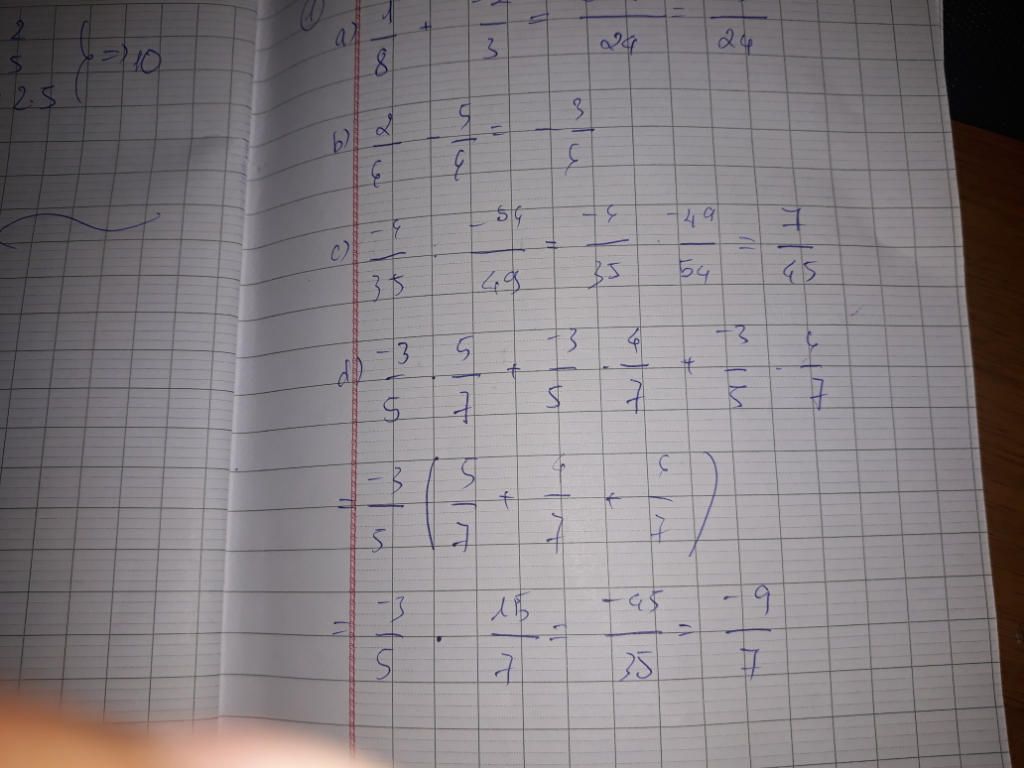 2
5
2.5
=> 10
①
a) 1/8 + -2/3 = /24 = /24
b) 2/6 - 5/6 = - 3/6
c) -6/35 . -54/49 = -6/35 . -49/54 = 7/45
d) -3/5 . 5/7 + -3/5 . 4/7 + -3/5 . 6/7
= -3/5 (5/7 + 4/7 + 6/7)
= -3/5 . 15/7 = -45/35 = -9/7